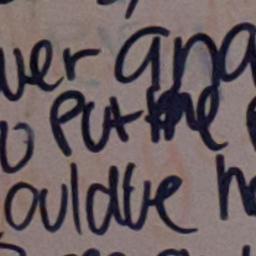 ver and
o put the
ould've h